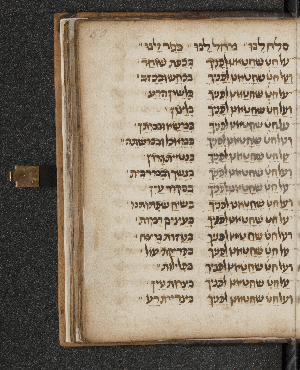 סלח לנו מחול לנו כפר לנו
על חט שחטאנו לפניך בכפת שוחד
ועל חט שחטאנו לפניך בכחש ובכזב
על חט שחטאנו לפניך בלשון הרע
ועל חט שחטאנו לפניך בלצון
על חט שחטאנו לפניך במשא ובמתן
ועל חט שחטאנו לפניך במאכל ובמשתה
על חט שחטאנו לפניך בנטיית גרון
ועל חט שחטאנו לפניך בנשך ובמרבית
על חט שחטאנו לפניך בסקור עין
ועל חט שחטאנו לפניך בשיח שפתותינו
על חט שחטאנו לפניך בעינים רמות
ועל חט שחטאנו לפניך בעזות מצח
על חט שחטאנו לפניך בפריקת עול
ועל חט שחטאנו לפניך בפלילות
על חט שחטאנו לפניך בצרות עין
ועל חט שחטאנו לפניך בצדיית רע